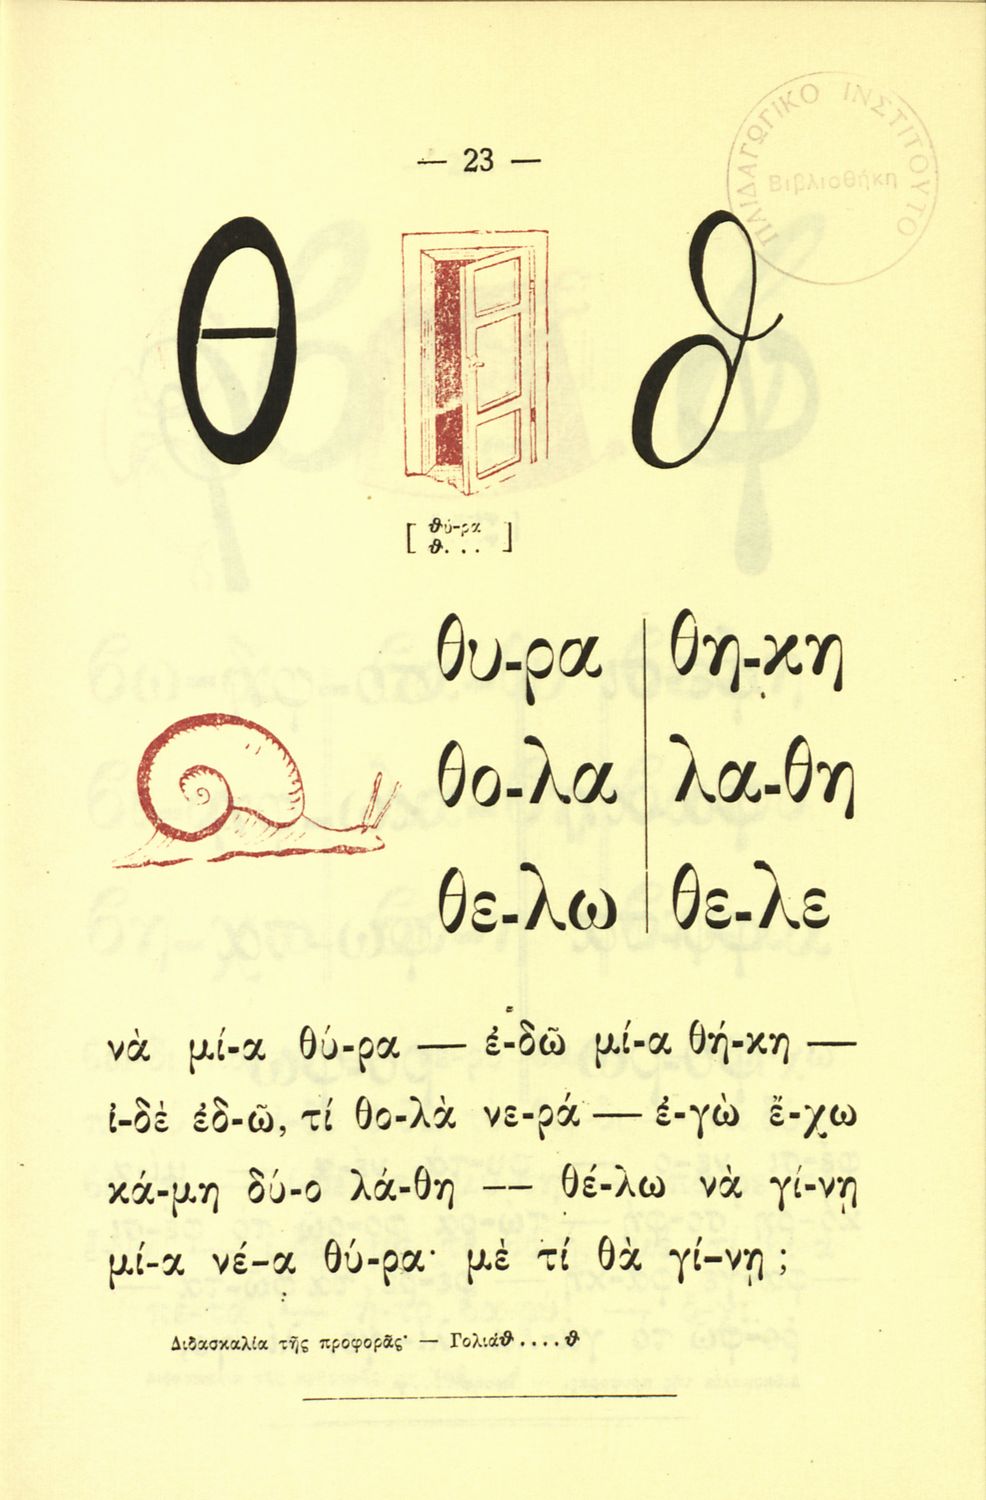 — 23 —
ΠΑΙΔΑΓΩΓΙΚΟ ΙΝΣΤΙΤΟΥΤΟ
Βιβλιοθήκη
θ ϑ
[ ϑύ-ρα
ϑ. . . ]
θυ-ρα | θη-κη
θο-λα | λα-θη
θε-λω | θε-λε
νὰ μί-α θύ-ρα — ἐ-δῶ μί-α θή-κη —
ἰ-δὲ ἐδ-ῶ, τί θο-λὰ νε-ρά — ἐ-γὼ ἔ-χω
κά-μη δύ-ο λά-θη — θέ-λω νὰ γί-νῃ
μί-α νέ-α θύ-ρα· μὲ τί θὰ γί-νῃ ;
Διδασκαλία τῆς προφορᾶς· — Γολιάϑ....ϑ